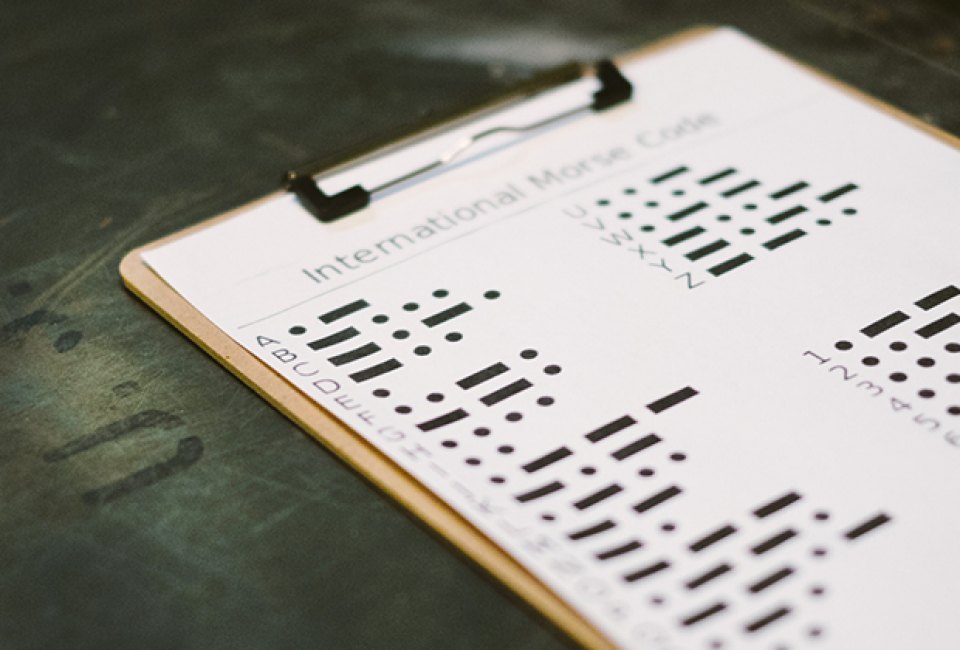 International Morse Code
A
B
C
D
E
F
G
H
I
J
K
L
M
N
O
U
V
W
X
Y
Z
1
2
3
4
5
6